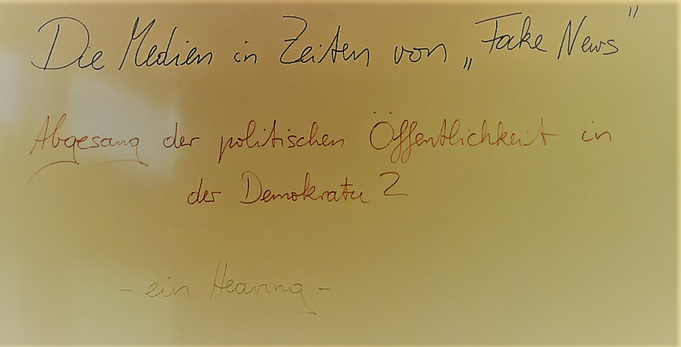 Die Medien in Zeiten von „Fake News"
Abgesang der politischen Öffentlichkeit in
der Demokratie?
- ein Hearing -